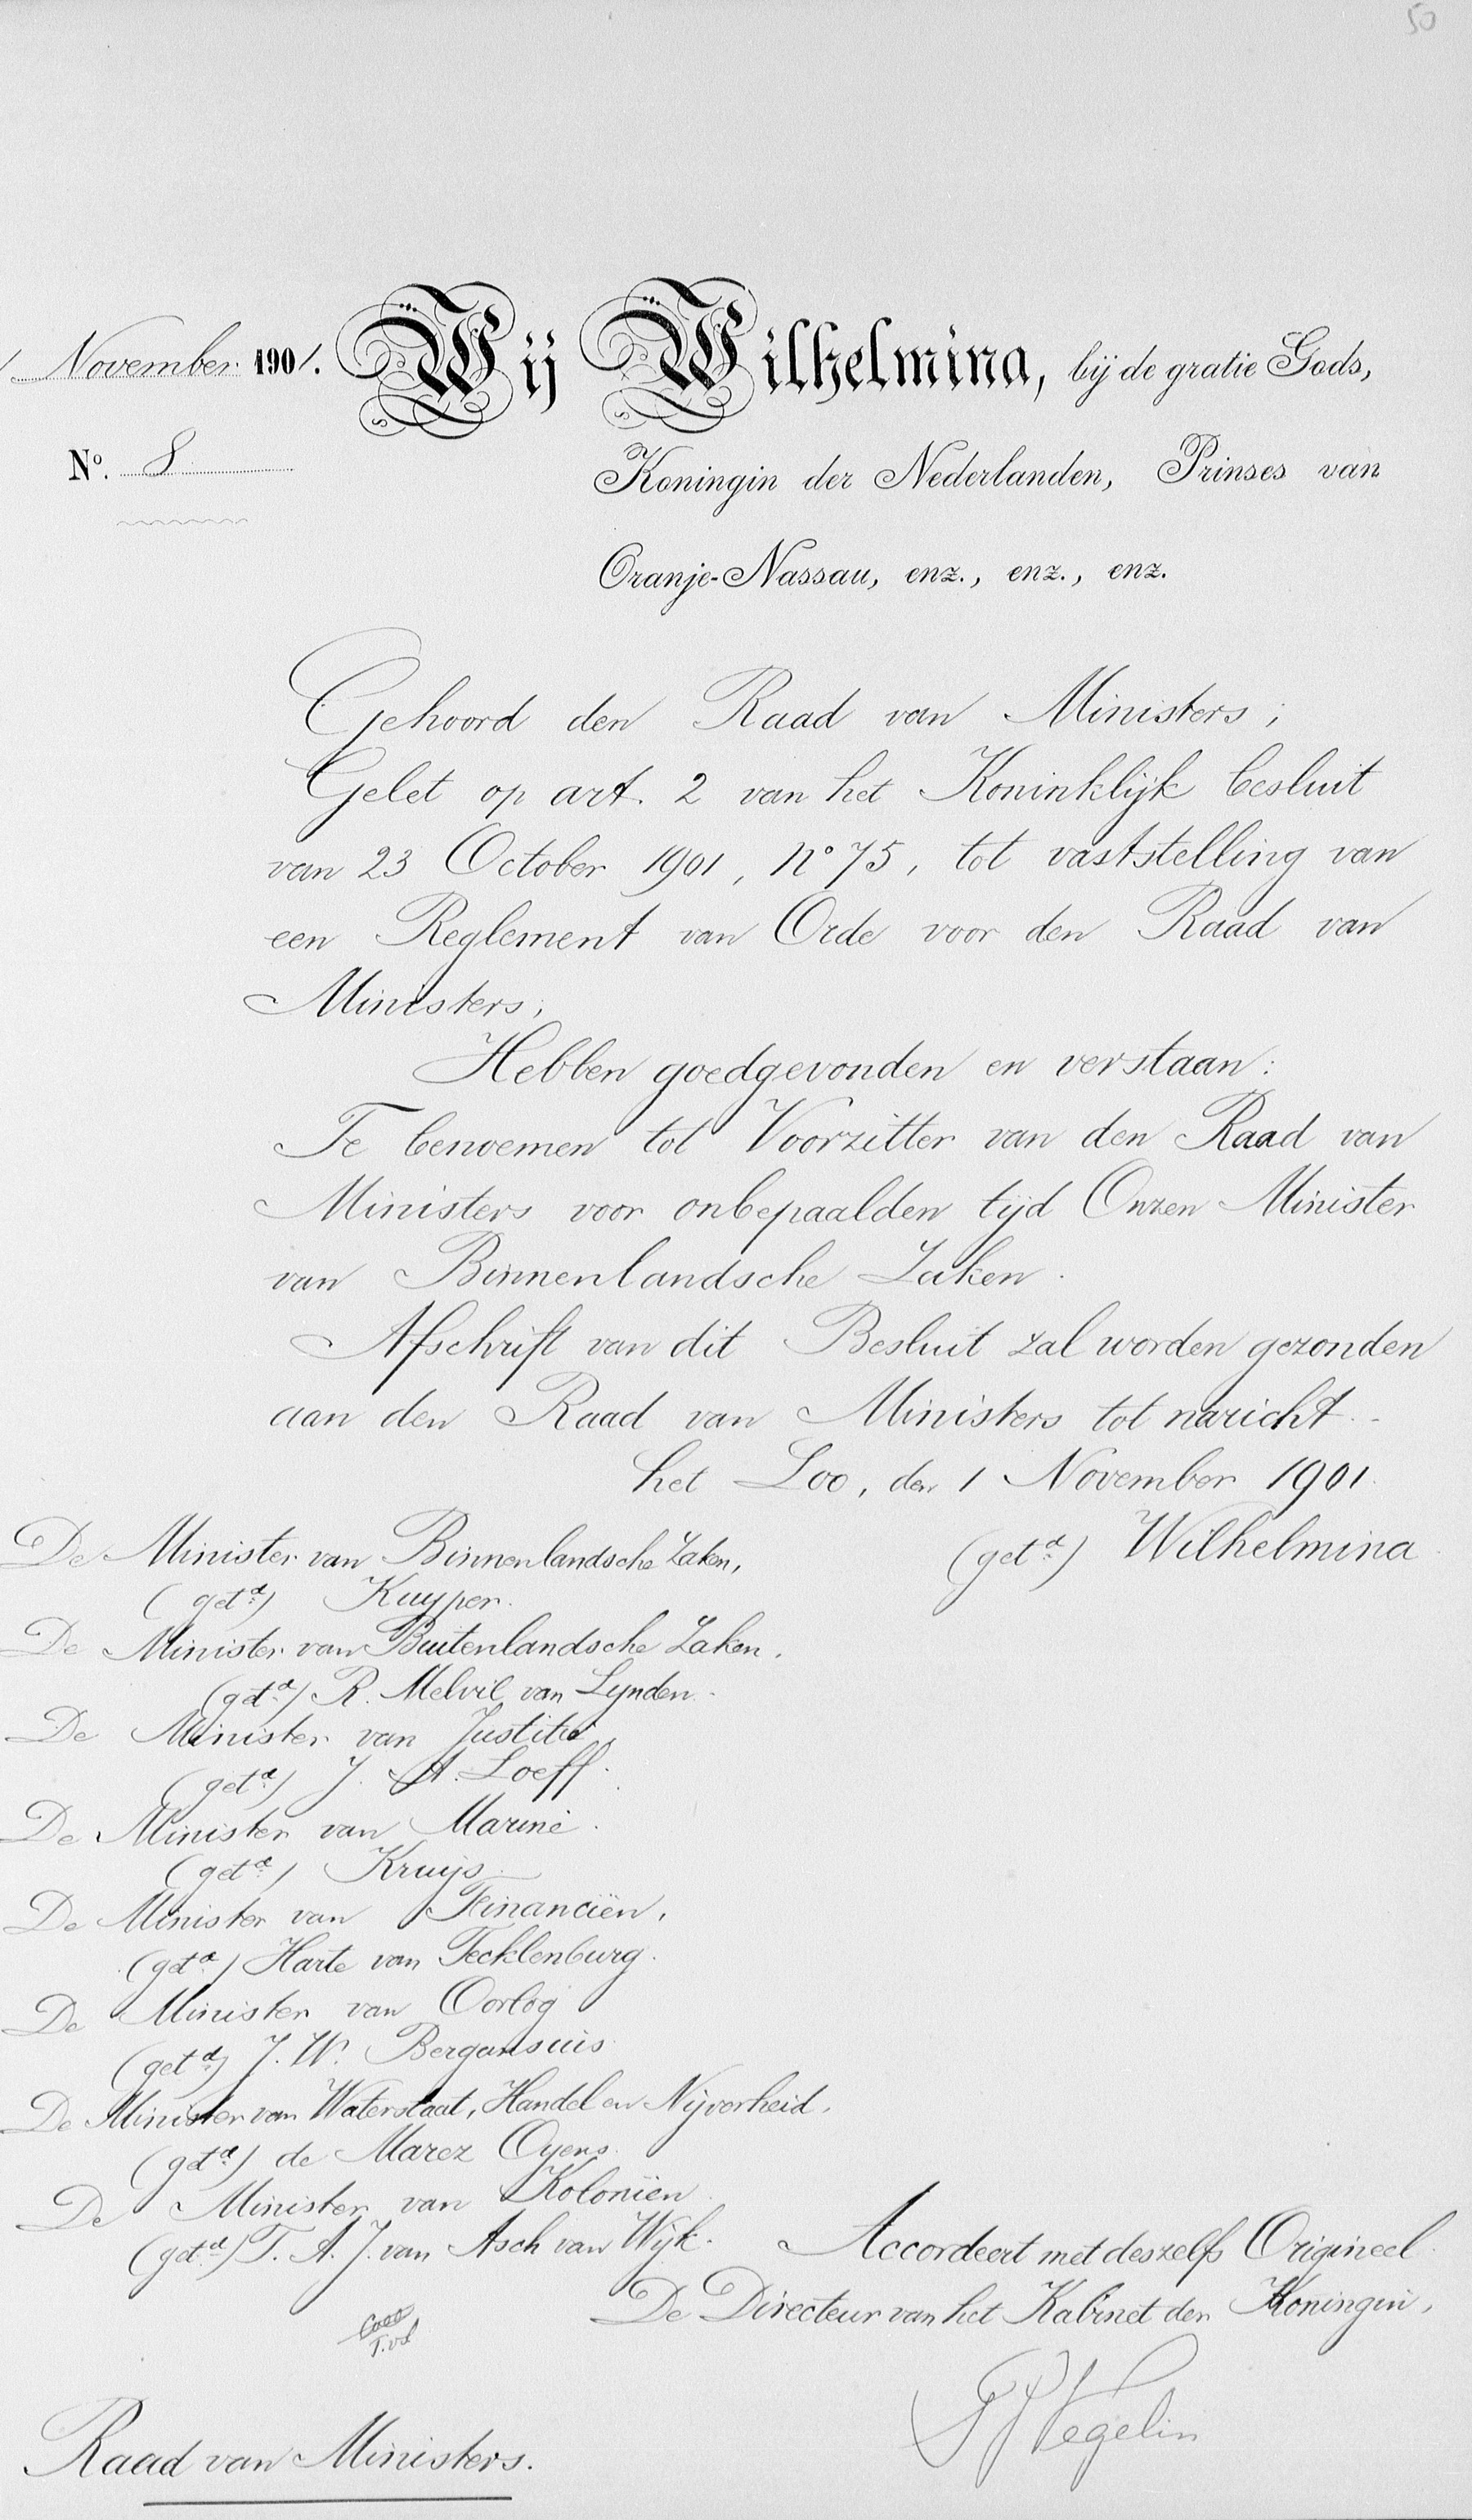 50
1 November 1901.
Wij Wilhelmina, bij de gratie Gods,
No. 8
Koningin der Nederlanden, Prinses van
Oranje-Nassau, enz., enz., enz.
Gehoord den Raad van Ministers;
Gelet op art. 2 van het Koninklijk besluit
van 23 October 1901, No 75, tot vaststelling van
een Reglement van Orde voor den Raad van
Ministers;
Hebben goedgevonden en verstaan:
Te benoemen tot Voorzitter van den Raad van
Ministers voor onbepaalden tijd Onzen Minister
van Binnenlandsche Zaken.
Afschrift van dit Besluit zal worden gezonden
aan den Raad van Ministers tot naricht.-
het Loo, den 1 November 1901.
(getd) Wilhelmina
De Minister van Binnenlandsche Zaken,
(getd) Kuyper.
De Minister van Buitenlandsche Zaken.
(getd) R. Melvil van Lynden.
De Minister van Justitie,
(getd) J. A. Loeff.
De Minister van Marine.
(getd) Kruijs.
De Minister van Financiën,
(getd) Harte van Tecklenburg.
De Minister van Oorlog
(getd) J. W. Bergansius
De Minister van Waterstaat, Handel en Nijverheid,
(getd) de Marez Oyens.
De Minister van Koloniën
(getd) T. A. J. van Asch van Wijk.
Accordeert met deszelfs Origineel.
De Directeur van het Kabinet der Koningin,
Vegelin
Raad van Ministers.